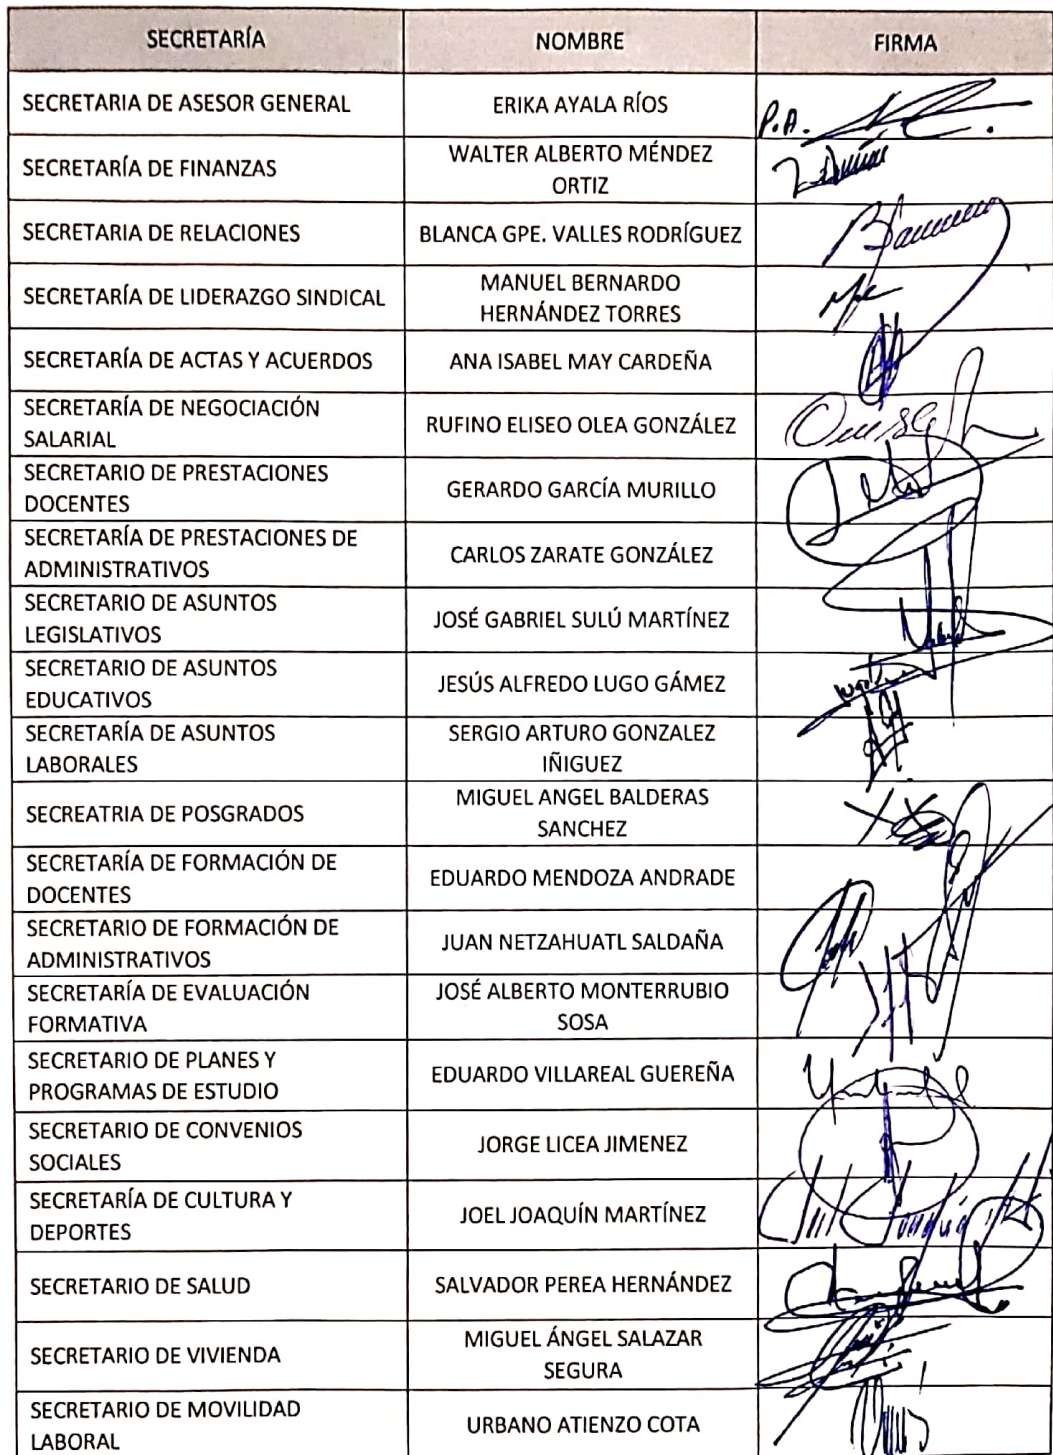 SECRETARÍA NOMBRE FIRMA
SECRETARIA DE ASESOR GENERAL ERIKA AYALA RÍOS P.A.
SECRETARÍA DE FINANZAS WALTER ALBERTO MÉNDEZ
ORTIZ
SECRETARIA DE RELACIONES BLANCA GPE. VALLES RODRÍGUEZ
SECRETARÍA DE LIDERAZGO SINDICAL MANUEL BERNARDO
HERNÁNDEZ TORRES
SECRETARÍA DE ACTAS Y ACUERDOS ANA ISABEL MAY CARDEÑA
SECRETARÍA DE NEGOCIACIÓN
SALARIAL RUFINO ELISEO OLEA GONZÁLEZ
SECRETARIO DE PRESTACIONES
DOCENTES GERARDO GARCÍA MURILLO
SECRETARÍA DE PRESTACIONES DE
ADMINISTRATIVOS CARLOS ZARATE GONZÁLEZ
SECRETARIO DE ASUNTOS
LEGISLATIVOS JOSÉ GABRIEL SULÚ MARTÍNEZ
SECRETARIO DE ASUNTOS
EDUCATIVOS JESÚS ALFREDO LUGO GÁMEZ
SECRETARÍA DE ASUNTOS
LABORALES SERGIO ARTURO GONZALEZ
IÑIGUEZ
SECREATRIA DE POSGRADOS MIGUEL ANGEL BALDERAS
SANCHEZ
SECRETARÍA DE FORMACIÓN DE
DOCENTES EDUARDO MENDOZA ANDRADE
SECRETARIO DE FORMACIÓN DE
ADMINISTRATIVOS JUAN NETZAHUATL SALDAÑA
SECRETARÍA DE EVALUACIÓN
FORMATIVA JOSÉ ALBERTO MONTERRUBIO
SOSA
SECRETARIO DE PLANES Y
PROGRAMAS DE ESTUDIO EDUARDO VILLAREAL GUEREÑA
SECRETARIO DE CONVENIOS
SOCIALES JORGE LICEA JIMENEZ
SECRETARÍA DE CULTURA Y
DEPORTES JOEL JOAQUÍN MARTÍNEZ
SECRETARIO DE SALUD SALVADOR PEREA HERNÁNDEZ
SECRETARIO DE VIVIENDA MIGUEL ÁNGEL SALAZAR
SEGURA
SECRETARIO DE MOVILIDAD
LABORAL URBANO ATIENZO COTA